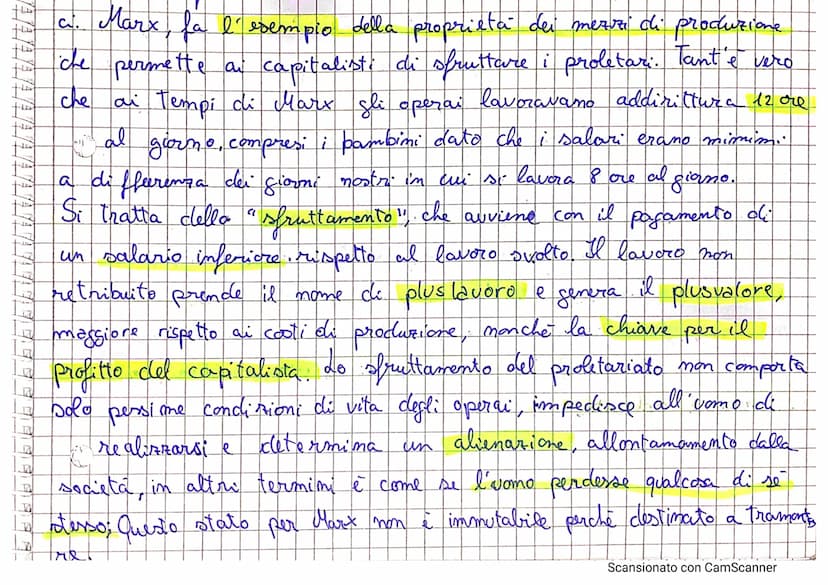 ci. Marx, fa l'esempio della proprietà dei mezzi di produzione
che permette ai capitalisti di sfruttare i proletari. Tant'è vero
che ai tempi di Marx gli operai lavoravano addirittura 12 ore
al giorno, compresi i bambini dato che i salari erano minimi.
a differenza dei giorni nostri in cui si lavora 8 ore al giorno.
Si tratta dello "sfruttamento", che avviene con il pagamento di
un salario inferiore rispetto al lavoro svolto. Il lavoro non
retribuito prende il nome di plus lavoro e genera il plusvalore,
maggiore rispetto ai costi di produzione, nonché la chiave per il
profitto del capitalista. Lo sfruttamento del proletariato non comporta
solo pessime condizioni di vita degli operai, impedisce all'uomo di
realizzarsi e determina un alienazione, allontanamento dalla
società, in altri termini è come se l'uomo perdesse qualcosa di sé
stesso; Questo stato per Marx non è immutabile perché destinato a tramonta
re.
Scansionato con CamScanner